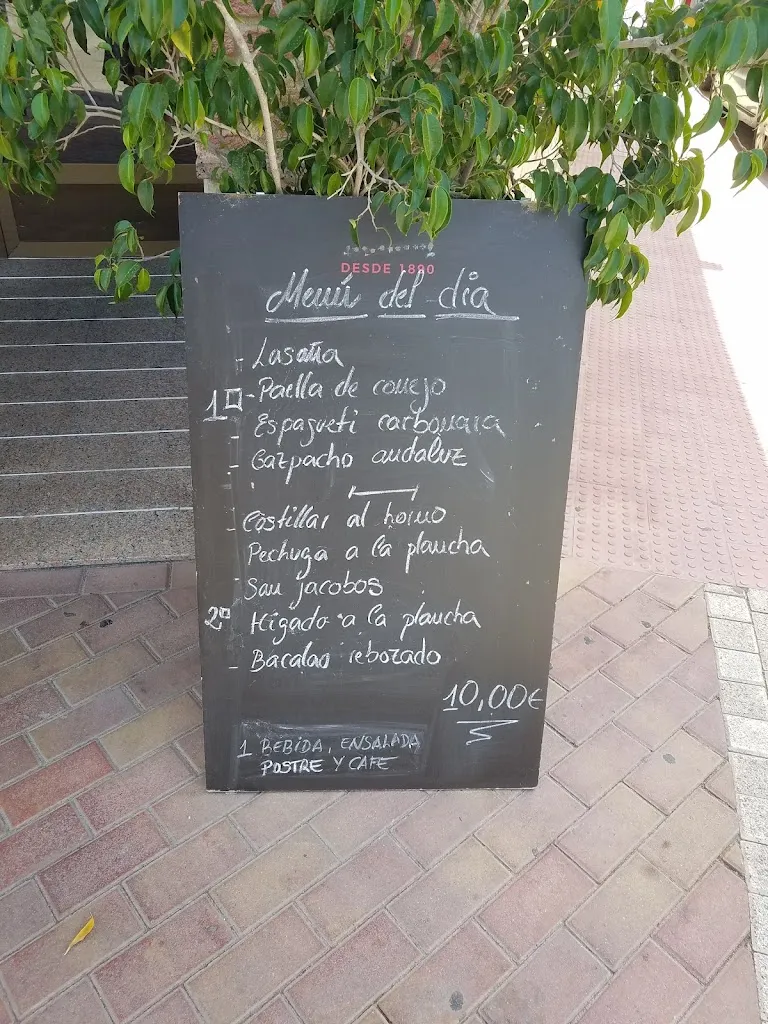 DESDE 1890
Menú del día
- Lasaña
1º - Paella de conejo
- Espagueti carbonara
- Gazpacho andaluz
- Costillar al horno
Pechuga a la plancha
San jacobos
2º Higado a la plancha
- Bacalao rebozado
10,00€
1 BEBIDA, ENSALADA
POSTRE Y CAFE